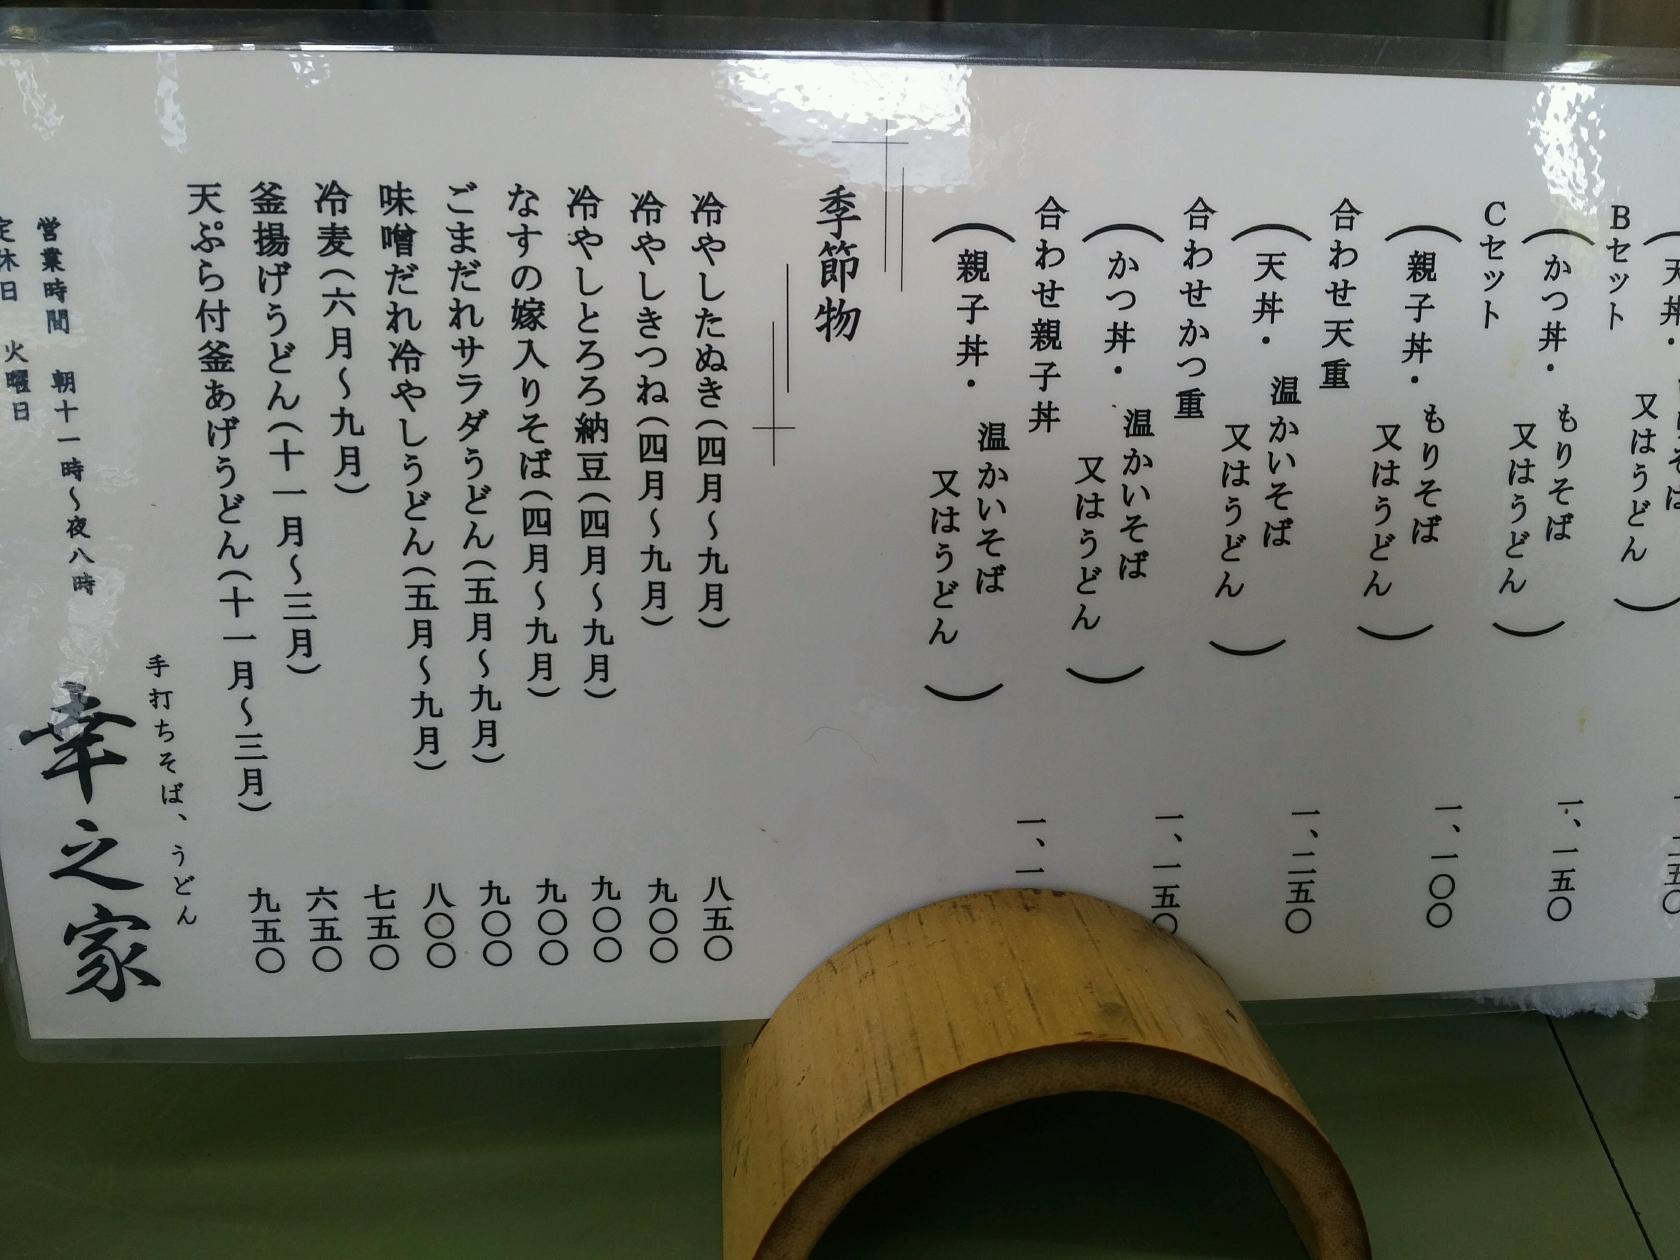 又はうどん）
Bセット
（かつ丼・もりそば
又はうどん） 一、一五〇
Cセット
（親子丼・もりそば
又はうどん） 一、一〇〇
合わせ天重
（天丼・温かいそば
又はうどん） 一、二五〇
合わせかつ重
（かつ丼・温かいそば
又はうどん） 一、一五〇
合わせ親子丼
（親子丼・温かいそば
又はうどん） 一、一
季節物
冷やしたぬき（四月～九月） 八五〇
冷やしきつね（四月～九月） 九〇〇
冷やしとろろ納豆（四月～九月） 九〇〇
なすの嫁入りそば（四月～九月） 九〇〇
ごまだれサラダうどん（五月～九月） 九〇〇
味噌だれ冷やしうどん（五月～九月） 八〇〇
冷麦（六月～九月） 七五〇
釜揚げうどん（十一月～三月） 六五〇
天ぷら付釜あげうどん（十一月～三月） 九五〇
手打ちそば、うどん
幸之家
営業時間 朝十一時～夜八時
定休日 火曜日